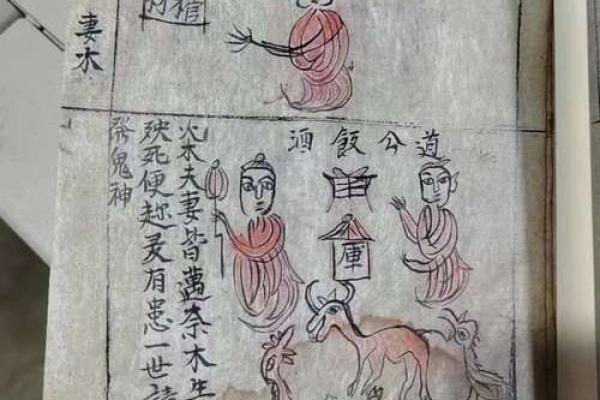 棺
妻木
道公飯酒
庫
火木夫妻皆奈木生
殃死便灵有患一世
鬼神